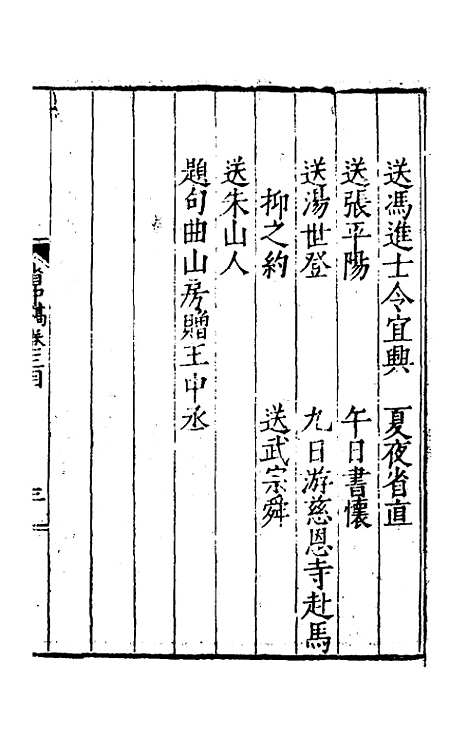 送馮進士令宜興　夏夜省直
送張平陽　午日書懷
送湯世登　九日游慈恩寺赴馬
抑之約　送武宗舜
送朱山人
題句曲山房贈王中丞
省中稿卷三目
三